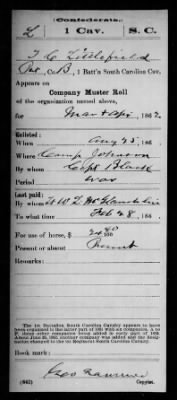 Confederate.
L 1 Cav. S. C.
T C Littlefield
Pvt, Co. B, 1 Batt'n South Carolina Cav.
Appears on
Company Muster Roll
of the organization named above,
for Mar & Apr, 1862.
Enlisted:
When Aug 25, 186
Where Camp Johnson
By whom Capt Black
Period war
Last paid:
By whom
To what time Feb 28, 186
For use of horse, $24 80/100
Present or absent Present
Remarks:
The 1st Battalion South Carolina Cavalry appears to have been
Book mark:
(642) Copyist.